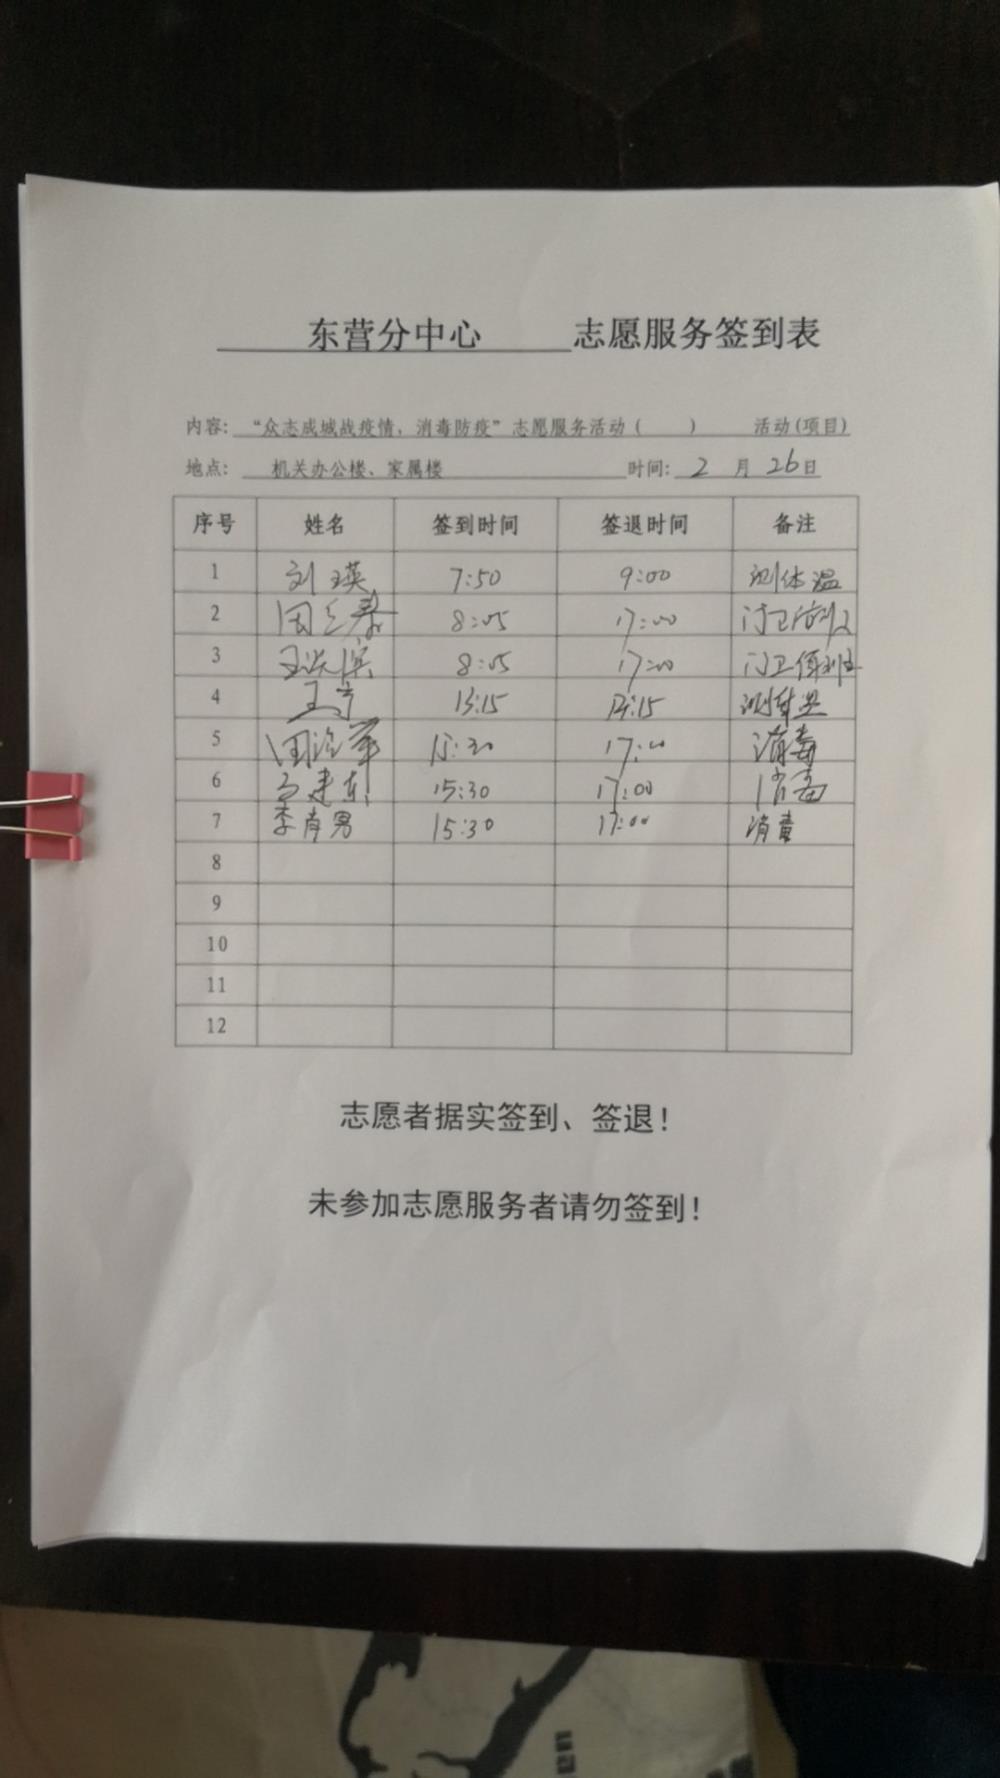 东营分中心 志愿服务签到表
内容: “众志成城战疫情、消毒防疫”志愿服务活动 ( ) 活动(项目)
地点: 机关办公楼、家属楼 时间: 2 月 26 日
序号 姓名 签到时间 签退时间 备注
1 刘瑛 7:50 9:00 测体温
2 8:05 17:00 门卫值班
3 王洪滨 8:05 17:00 门卫值班
4 王宁 13:15 14:15 测体温
5 15:30 17:00 消毒
6 建东 15:30 17:00 消毒
7 李肖男 15:30 17:00 消毒
8
9
10
11
12
志愿者据实签到、签退!
未参加志愿服务者请勿签到!